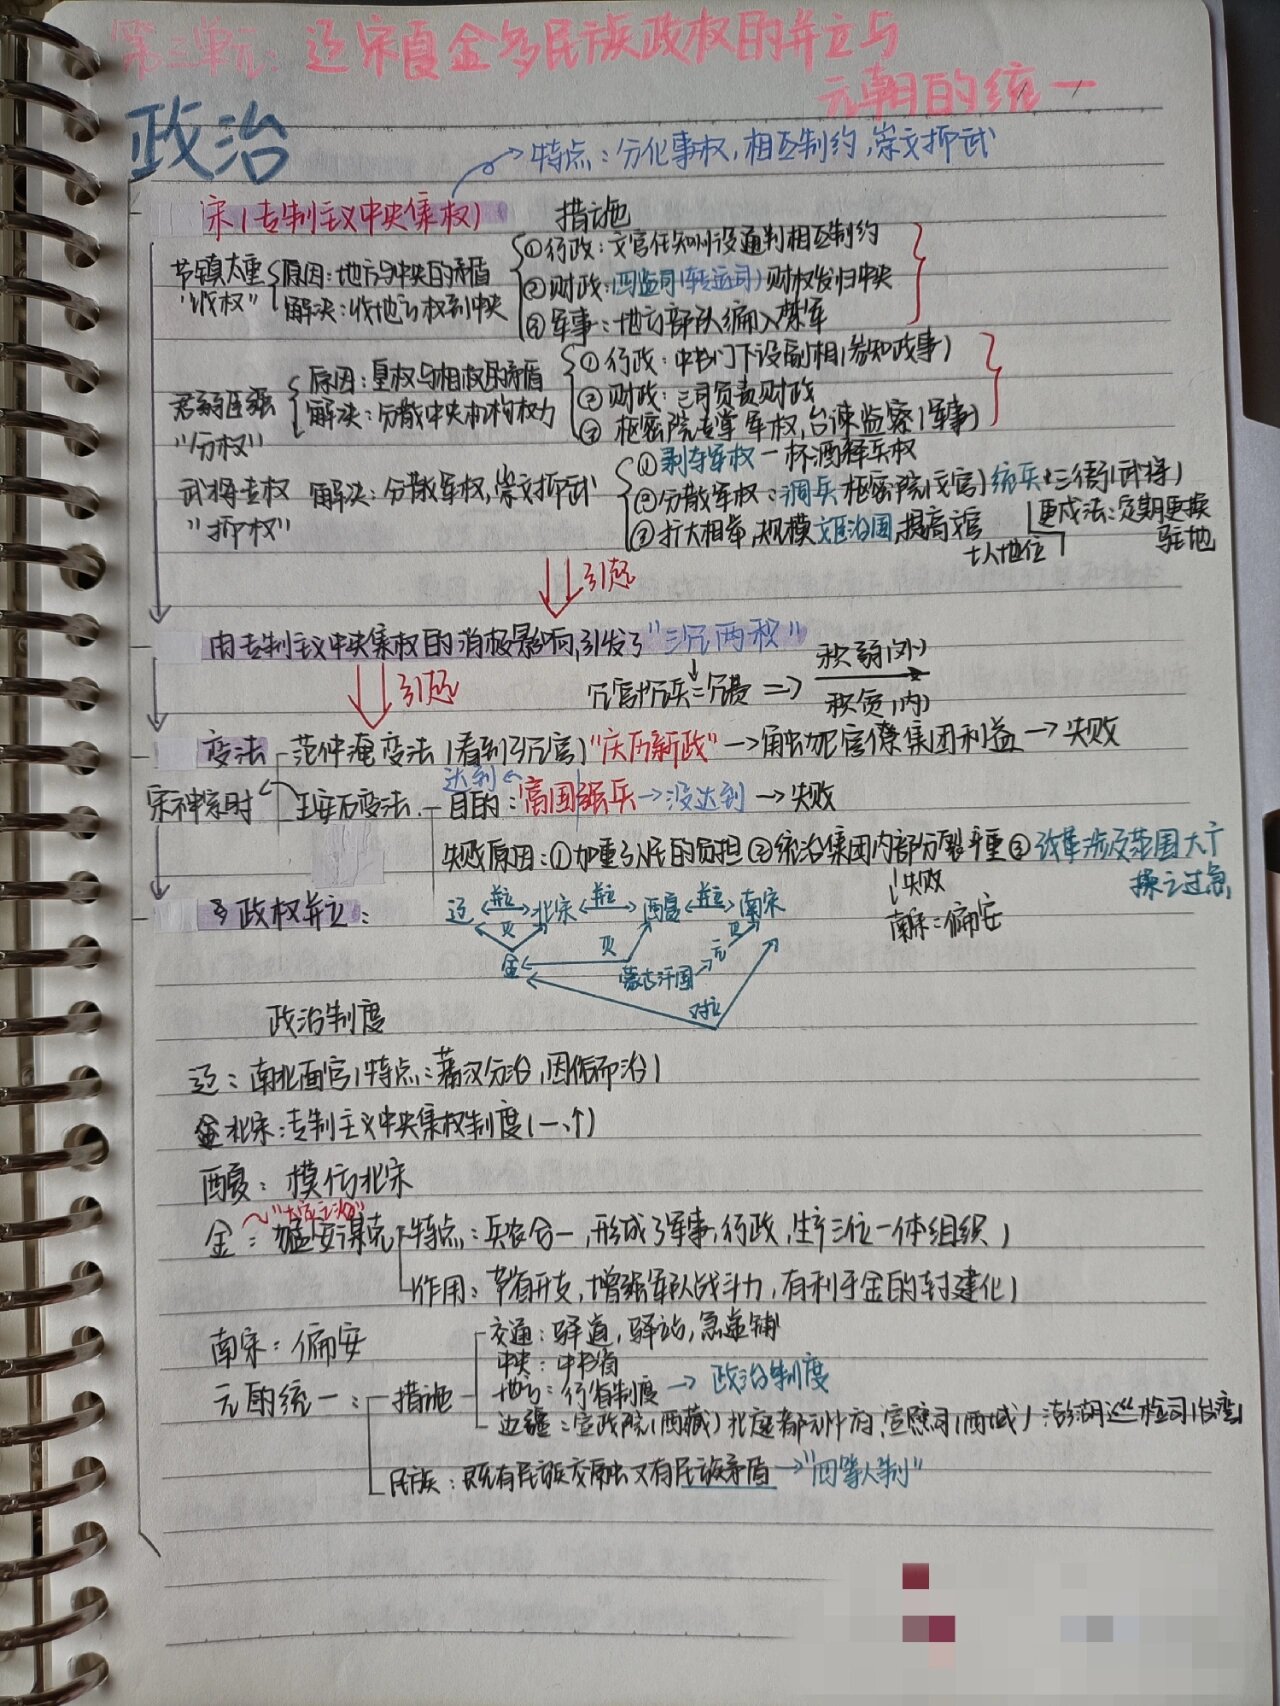 第三单元：辽宋夏金多民族政权的并立与
元朝的统一
政治
特点：分化事权，相互制约，崇文抑武
宋（专制主义中央集权）
措施
节镇太重
"收权"
原因：地方与中央的矛盾
解决：收地方权到中央
①行政：文官任知州设通判相互制约
②财政：四监司（转运司）财权发归中央
③军事：地方部队编入禁军
君弱臣强
"分权"
原因：皇权与相权的矛盾
解决：分散中央机构权力
①行政：中书门下设副相（参知政事）
②财政：三司负责财政
③枢密院专掌军权，台谏监察（军事）
武将专权
"抑权"
解决：分散军权，崇文抑武
①剥夺军权一杯酒释兵权
②分散军权：调兵枢密院（文官）统兵 三衙（武将）
③扩大科举，规模 文臣治国，提高文官
士人地位
更戍法：定期更换
驻地
引起
由专制主义中央集权的消极影响，引发了"三冗两积"
引起
冗官+冗兵=冗费 ⇒
积弱（外）
积贫（内）
变法
范仲淹变法（看到了冗官）"庆历新政"→触犯官僚集团利益→失败
宋神宗时
王安石变法
达到
目的：富国强兵→没达到→失败
失败原因：①加重了人民的负担②统治集团内部分裂严重③改革涉及范围太广
操之过急
失败
南宋：偏安
多政权并立：
辽 并立 北宋 并立 西夏 并立 南宋
灭 灭 灭
金 蒙古汗国 元
对立
政治制度
辽：南北面官（特点：蕃汉分治，因俗而治）
北宋：专制主义中央集权制度（一个）
西夏：模仿北宋
金：猛安谋克
特点：兵农合一，形成了军事，行政，生产三位一体组织）
作用：节省开支，增强军队战斗力，有利于金的封建化）
南宋：偏安
元的统一：
措施
交通：驿道，驿站，急递铺
中央：中书省
地方：行省制度→政治制度
边疆：宣政院（西藏）北庭都元帅府，宣慰司（西域）澎湖巡检司（台湾）
民族：既有民族交融 又有民族矛盾→"四等人制"